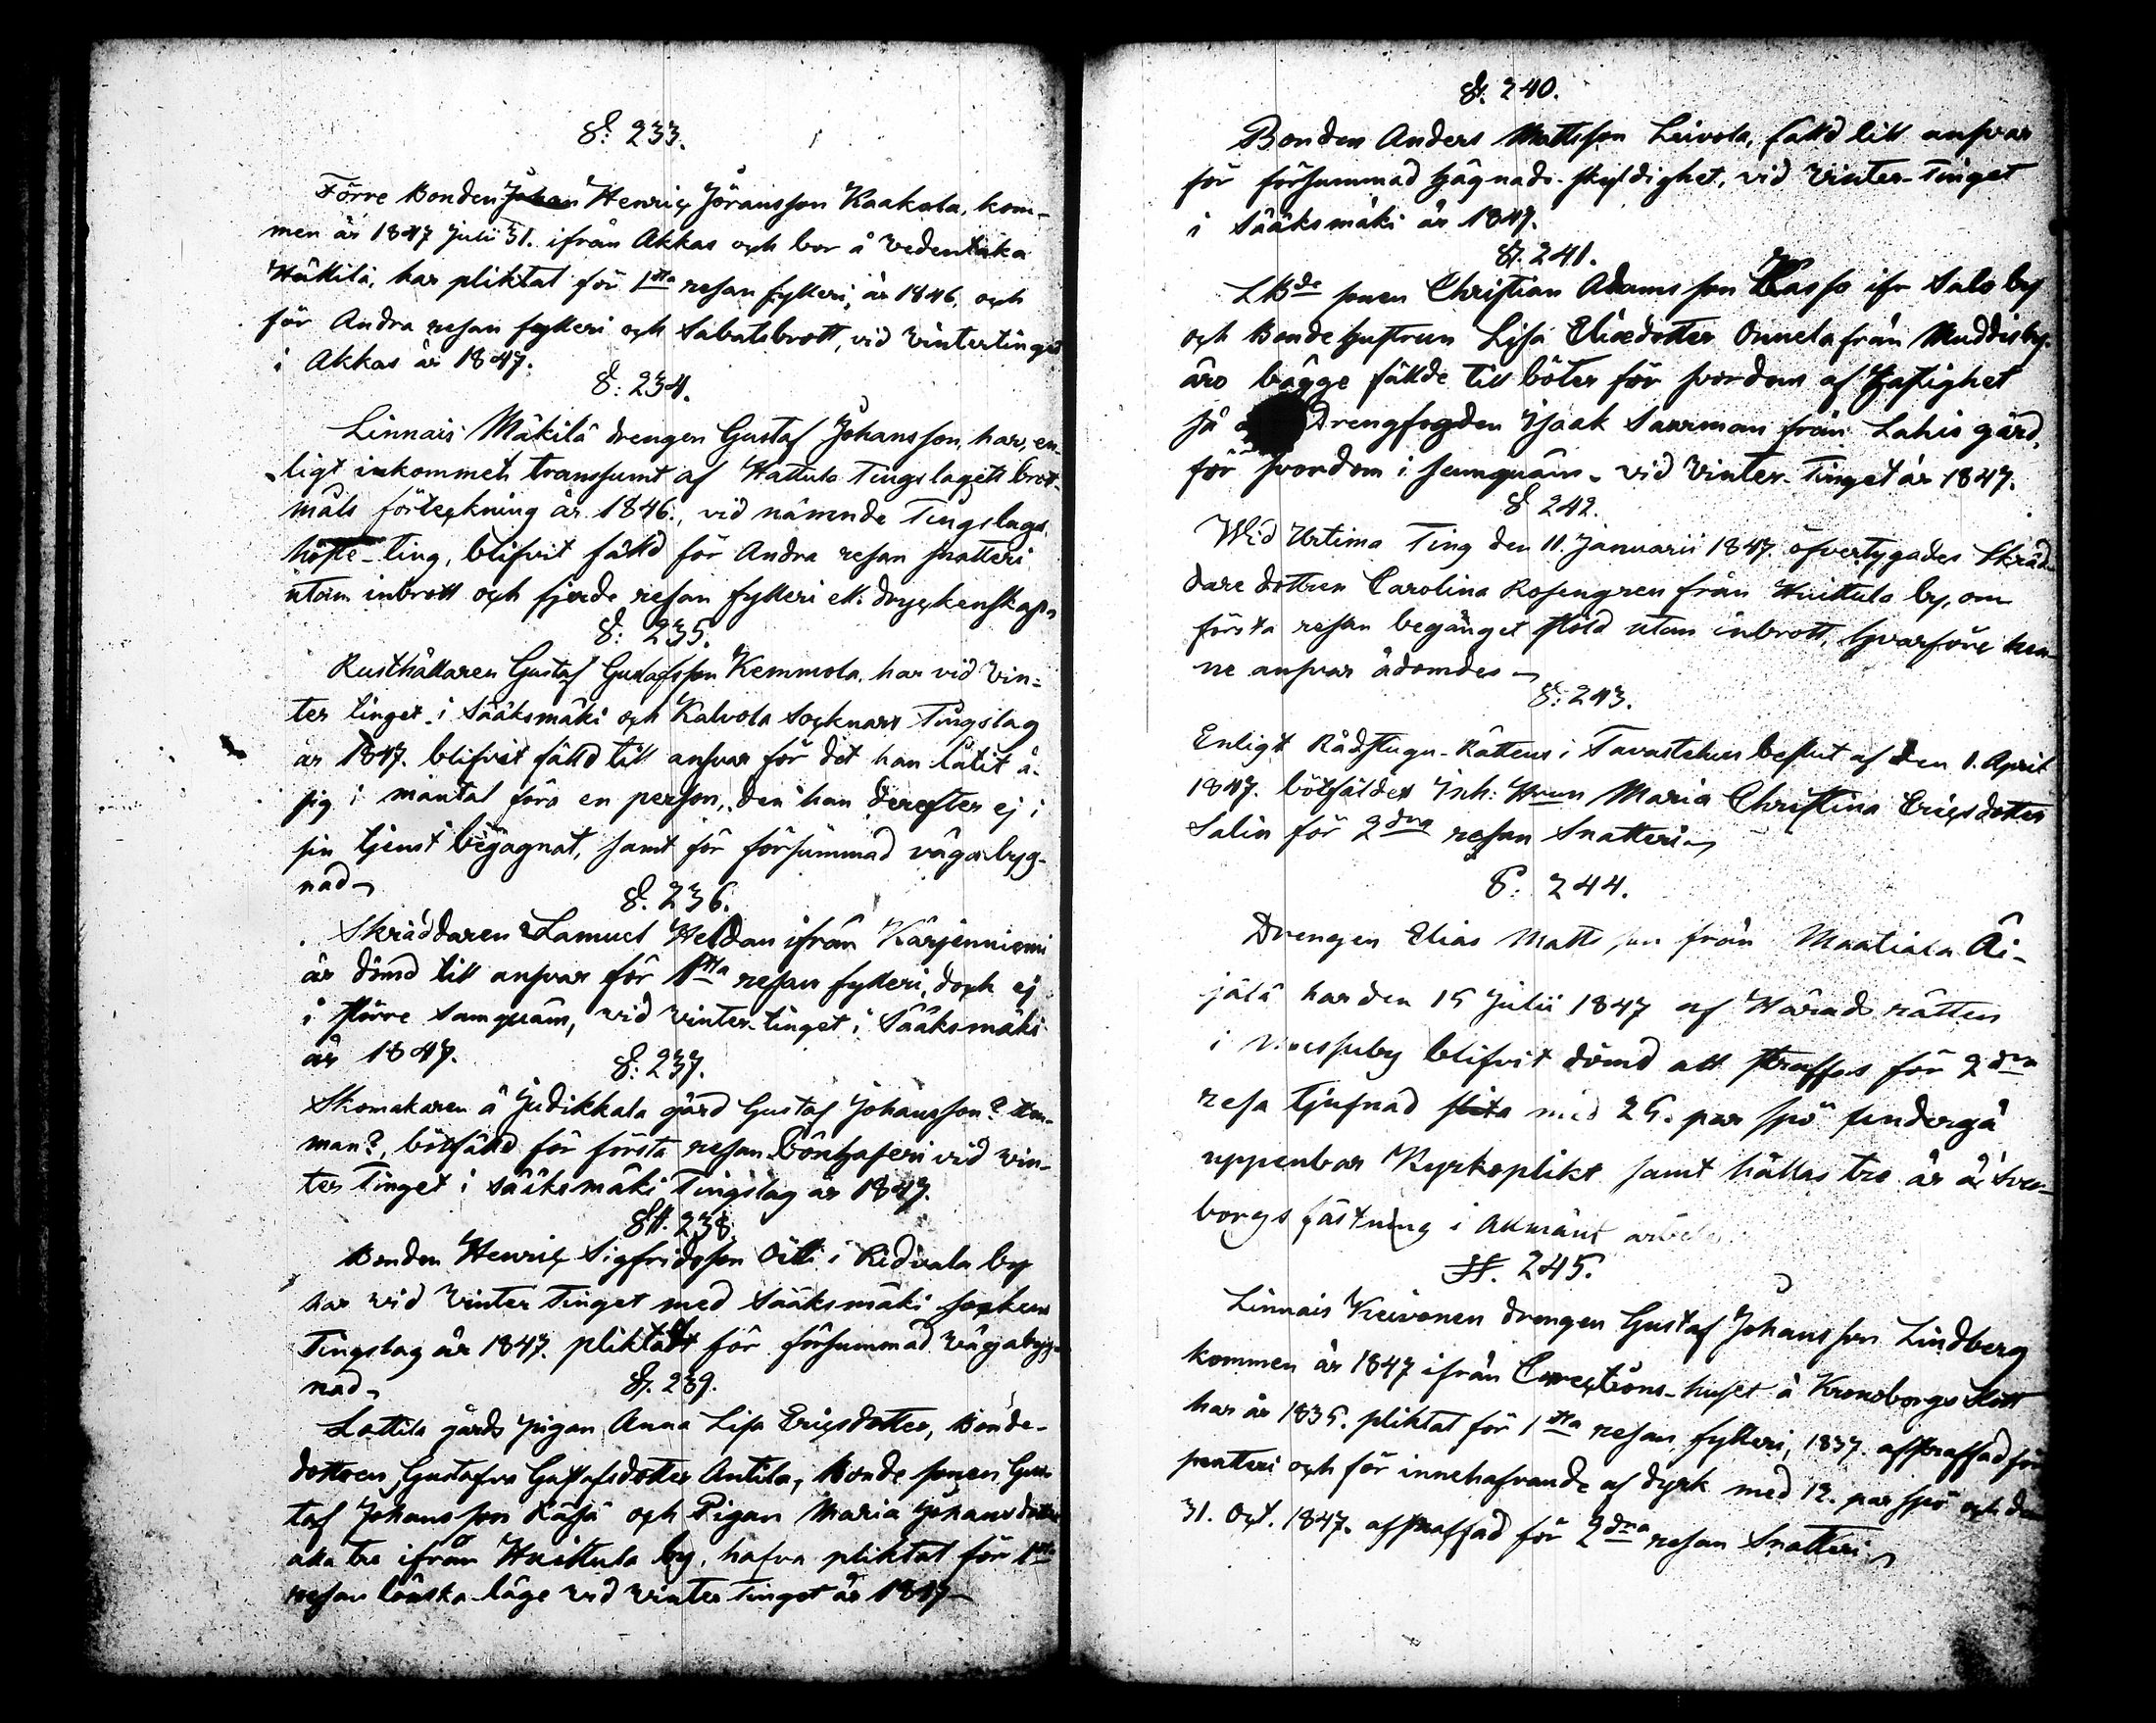 §. 233.
Förre Bonden Johan Henric Jöransson Kaakala, kom-
men år 1847 Julii 31. ifrån Akkas och bor å Vedentaka
Hakkilä, har pliktat för 1sta resan fylleri, år 1846, och
för Andra resan fylleri och Sabatsbrott, vid Vintertinget
i Akkas år 1847.
§: 234.
Linnais Mäkilä drengen Gustaf Johansson, har, en-
ligt inkommet transsumt af Hattula Tingslagets brot-
måls förteckning år 1846., vid nämnde Tingslags
höste-Ting, blifvit fälld för Andra resan snatteri
utom inbrott och fjerde resan fylleri ell. dryckenskap
§: 235.
Rusthållaren Gustaf Gustafsson Kemmola, har vid Vin-
ter tinget i Sääksmäki och Kalvola Socknars Tingslag
år 1847. blifvit fälld till ansvar för det han låtit å
sig i mantal föra en person, den han derefter ej i
sin tjenst begagnat, samt för försummad vägabyg-
nad
§. 236.
Skräddaren Samuel Heldan ifrån Kärjenniemi
är dömd till ansvar för 1sta resan fylleri, doch ej
i större Samquäm, vid Vinter-tinget i Sääksmäki
år 1847.
§: 237.
Skomakaren å Judikkala gård Gustaf Johansson?
man?, bötfälld för första resan bönhaseri vid vin-
ter Tinget i Sääksmäki Tingslag år 1847.
§. 238.
Bonden Henric Sigfridsson Ötti i Ridvala by
har vid Vinter Tinget med Sääksmäki socken
Tingslag år 1847. pliktat för försummad vägabyg-
nad
§. 239.
Lottila gårds pigan Anna Lisa Ericsdotter, Bonde-
dottren Gustafva Gustafsdotter Antila, Bonde sonen Gus
taf Johansson Kässä och Pigan Maria Johansdotter
alla tre ifrån Huittula by, hafva pliktat för 1sta
resan lönska läge vid Vinter Tinget år 1847
§. 240.
Bonden Anders Mattsson Leivola, fälld till ansvar
för försummad hägnads-skyldighet, vid Vinter-Tinget
i Sääksmäki år 1847.
§. 241.
LBde sonen Christian Adamsson Kasso ifr Salo by
och Bonde hustrun Lisa Eliædotter Onnela från Muddisby.
äro bägge fällde till böter för svordom af Hastighet
så Drengfogden Isaak Saurman från Lahis gård,
för svordom i samquäm, vid Vinter-Tinget år 1847.
§ 242.
Wid Urtima Ting den 11. Januarii 1847. öfvertygades Skräd-
dare dottren Carolina Rosengren från Huittula by, om
första resan begånget stöld utan inbrott, hvarföre hen-
ne ansvar ådömdes
§: 243.
Enligt Rådstugu-Rättens i Tavastehus beslut af den 1. April
1847. bötfäldes Inh: Hrun Maria Christina Ericsdotter
Salin för 2dra resan Snatteri
§: 244.
Drengen Elias Mattsson från Maatiala Äi-
jälä har den 15 Julii 1847 af Härads rätten
i blifvit dömd att straffas för 2dra
resa tjufnad slita med 25. par spö undergå
uppenbar Kyrkoplikt samt hållas tre år å Svea-
borgs fästning i Allmänt arbete
§. 245.
Linnais Keivonen drengen Gustaf Johansson Lindberg
kommen år 1847 ifrån Corrections-huset å Kronoborgs Slott
har år 1835. pliktat för 1sta resan fylleri, 1837. afstraffad för
snatteri och för innehafvande af dyrk med 12. par spö och den
31. Oct. 1847. afstraffad för 2dra resan Snatteri